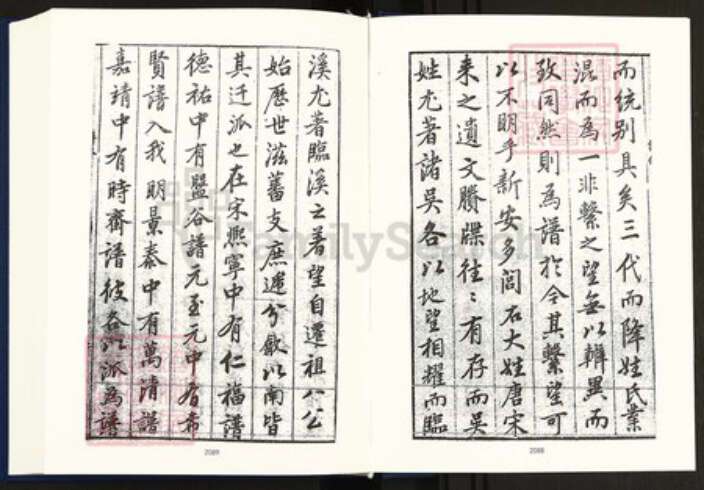 而統别具矣三代而降姓氏業
混而為一非繫之望無以辨異而
致同然則為譜於今其繫望可
以不明乎新安多閥右大姓唐宋
来之遺文賸牒往〻有存而吳
姓尤著諸吳各以地望相耀而臨
溪尤著臨溪之著望自遷祖八公
始歷世滋蕃支庶遞分歙以南皆
其迁派也在宋熙寧中有仁福譜
德祐中有盤谷譜元至元中有希
賢譜入我明景泰中有萬清譜
嘉靖中有時齋譜彼各以派為譜
2088
2089
FamilySearch